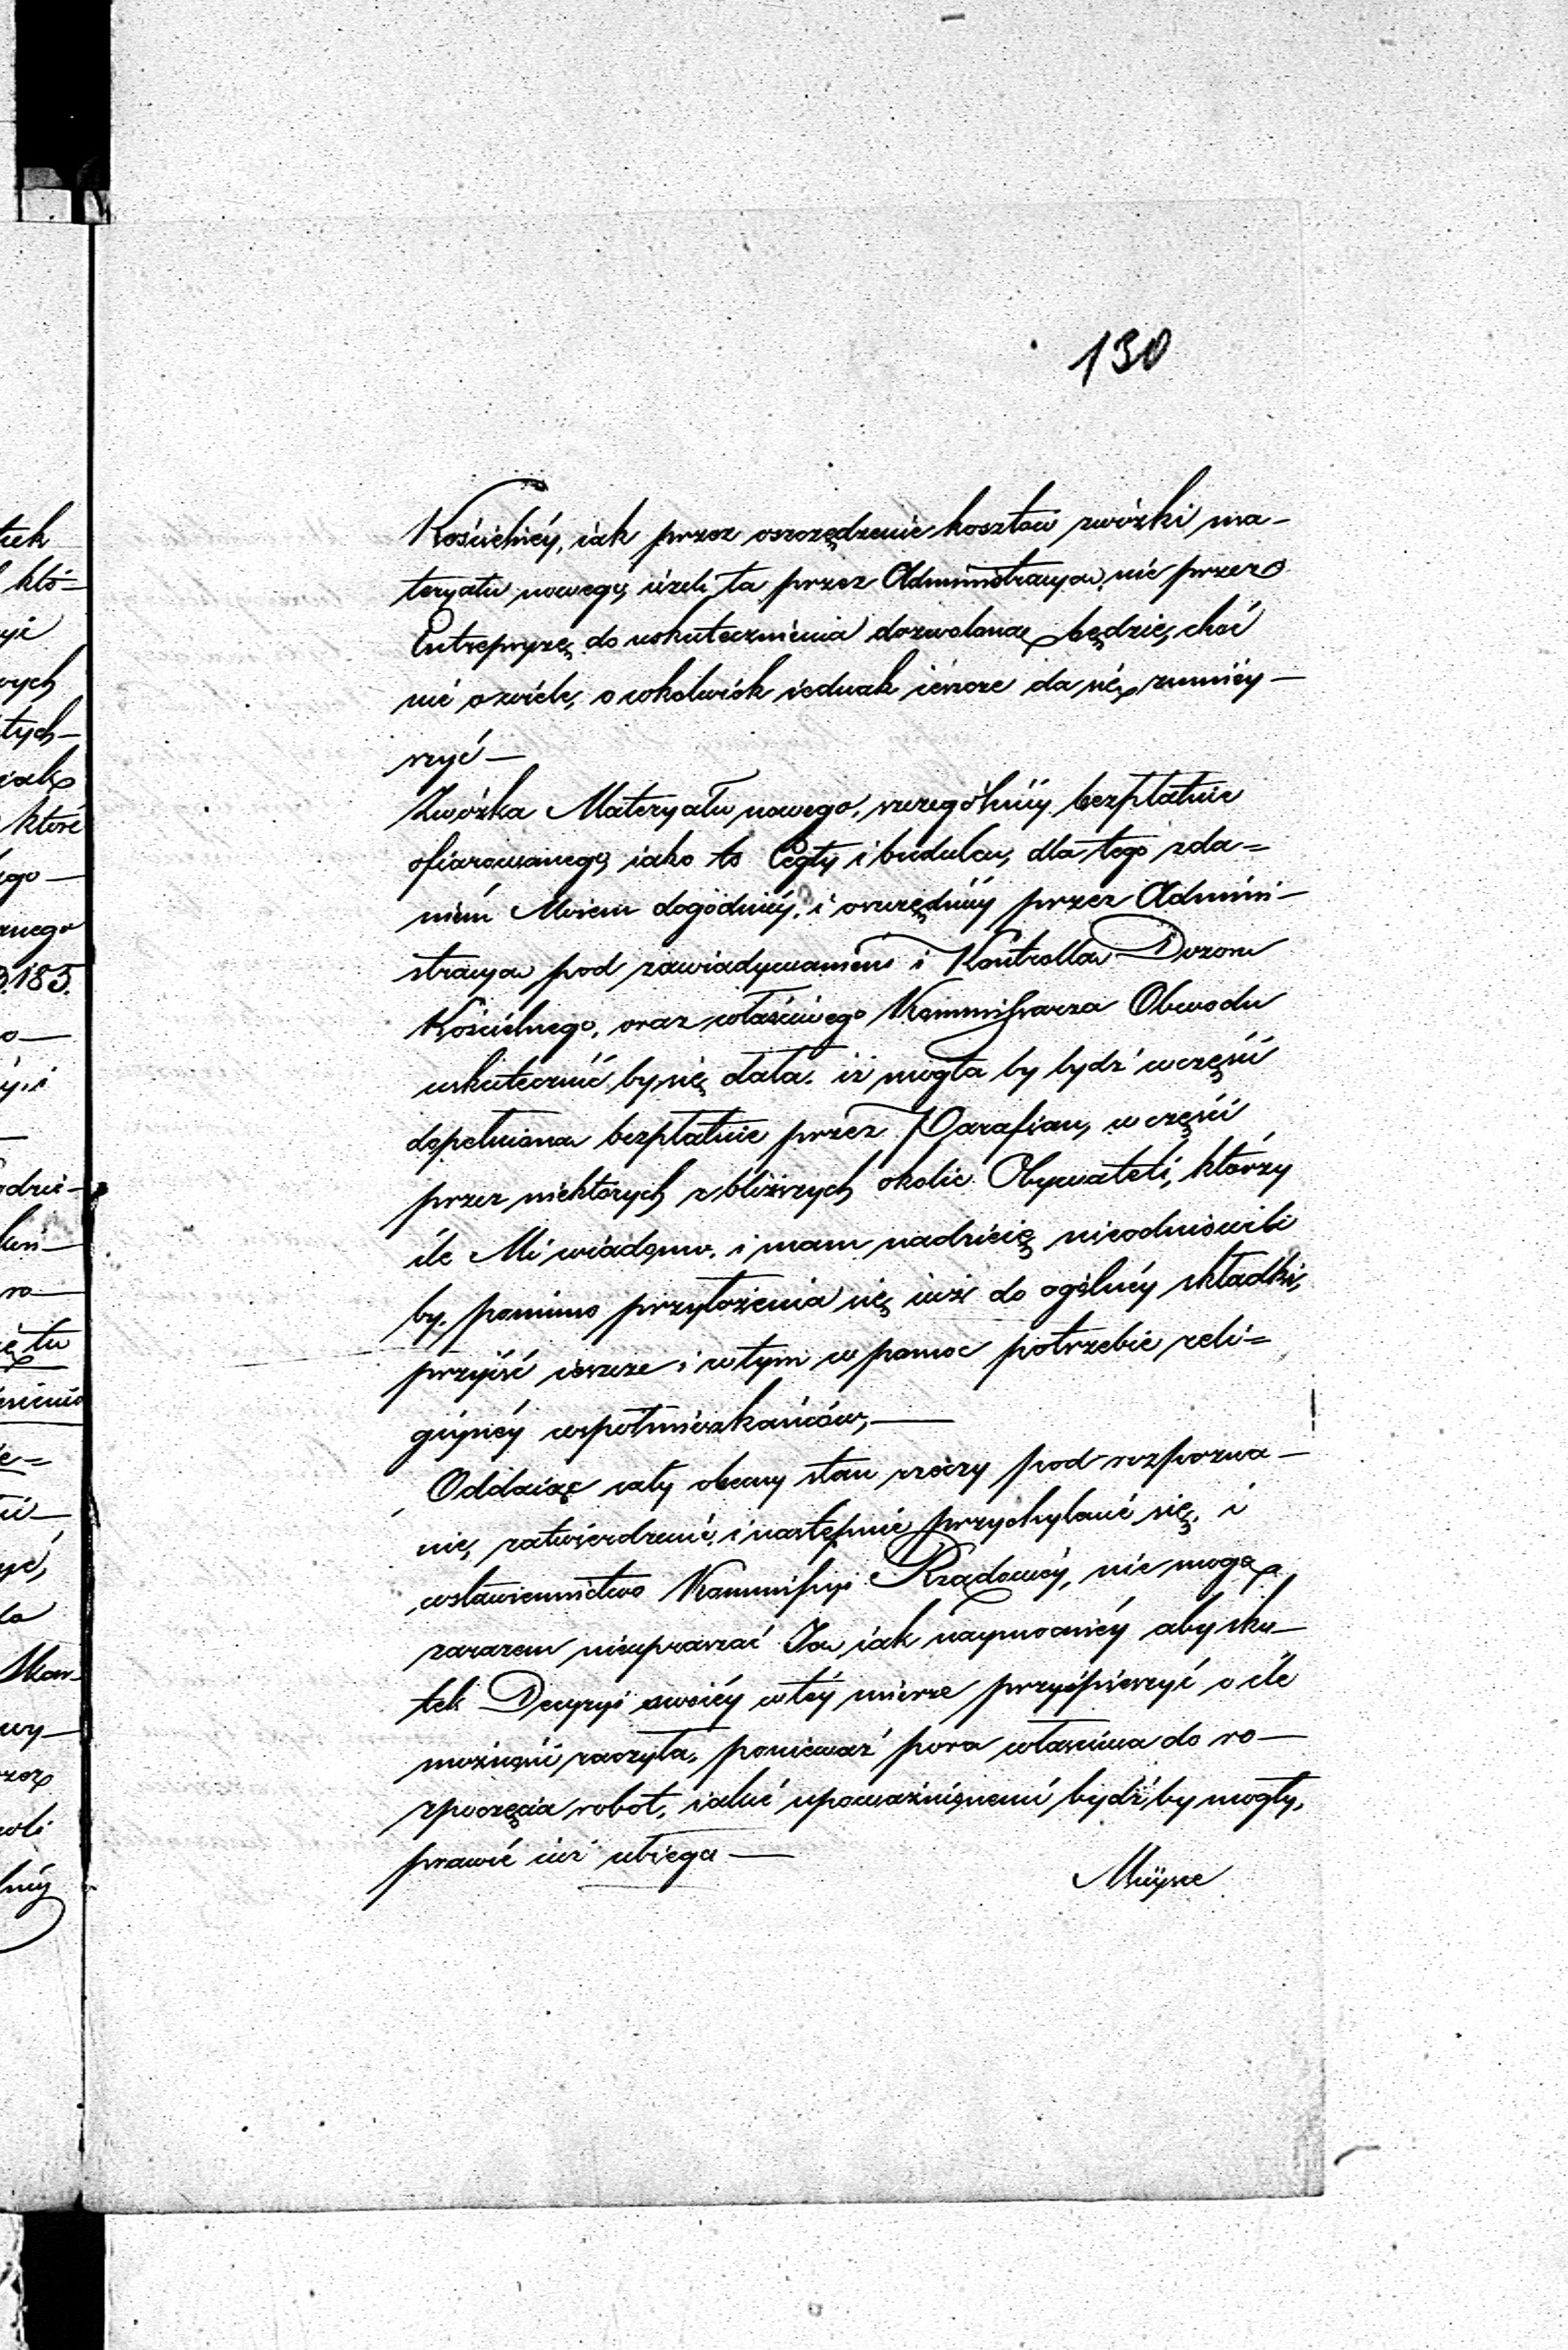 130
Kościelnéy, iak przez oszczędzenie kosztów zwózki ma-
teryału nowego, ieżeli ta przez Administracyą, nie przez
Entrepryzę do uskutecznienia dozwoloną będzie, choć
nie o wiele, o cokolwiek iednak ieszcze da się zmniey-
szyć —
Zwózka Materyału nowego, szczególniéy bezpłatnie
ofiarowanego, iako to Cegły i budulcu, dla tego zda=
niem Moiem dogodniéy, i oszczędniéy przez Admini-
stracyą pod zawiadywaniem i Kontrollą Dozoru
Kościelnego, oraz właściwego Kommissarza Obwodu
uskutecznić by się dała, iż mogła by bydź w części
dopełniona bezpłatnie przez Parafian, w części
przez niektórych z bliższych okolic Obywateli, którzy
ile Mi wiadomo, i mam nadzieię nieodmówili
by, pomimo przyłożenia się iuż do ogólnéy składki,
przyiść ieszcze i w tym w pomoc potrzebie reli=
giynéy współmieszkańców, —
Oddaiąc cały obecny stan rzeczy pod rozpozna-
nie, zatwierdzenie, i następnie przychylanie się, i
wstawiennictwo Kommissyi Rządowéy, nie mogę
zarazem nieupraszać Ią iak naymocniéy aby sku-
tek Decyzyi swoiéy w téy mierze przyśpieszyć o ile
możności raczyła, ponieważ pora właściwa do ro-
zpoczęcia robot, iakie upoważnionemi bydź by mogły,
prawie iuż ubiega —
tuch
któ=
wych
tych-
które
ego —
znego
185.
ę tu